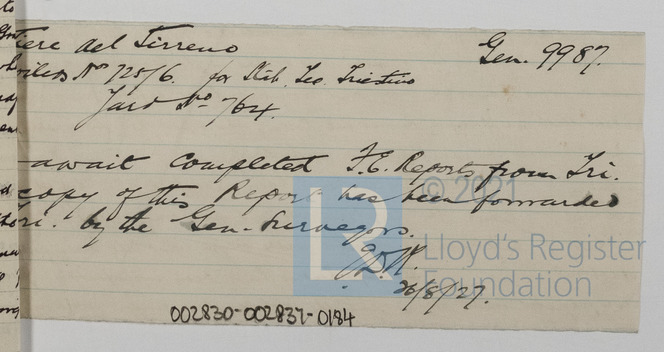 tiere del Tirreno Gen. 9987.
Boilers Nº 725/6. for Stab. Tec. Triestino
Yard No 764.
await completed F.E. Reports from Tri.
copy of this Report has been forwarded
Tri. by the Gen. Surveyors.
26/8/27.
© 2021
LR
Lloyd's Register
Foundation
002830-002837-0184